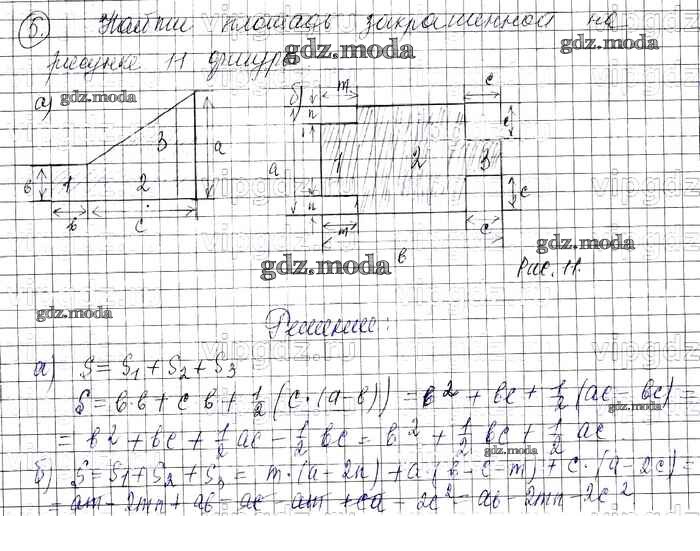 5. Найти площадь закрашенной на
рисунке 11 фигуры
gdz.moda
gdz.moda
а) gdz.moda
б)
m
c
n
c
3
a
в
1
2
в
c
a
1
2
3
n
c
m
c
в
gdz.moda
gdz.moda
Рис. 11.
gdz.moda
Решение:
а) S = S1 + S2 + S3
S = в·в + c в + 1/2 (c·(a-в)) = в² + вc + 1/2 (ac - вc) =
gdz.moda
= в² + вc + 1/2 ac - 1/2 вc = в² + 1/2 вc + 1/2 ac
gdz.moda
б) S = S1 + S2 + S3 = m·(a-2n) + a·(в-c-m) + c·(a-2c) =
= am - 2mn + aв - ac - am + ca - 2c² = aв - 2mn - 2c²
vipgdz.ru